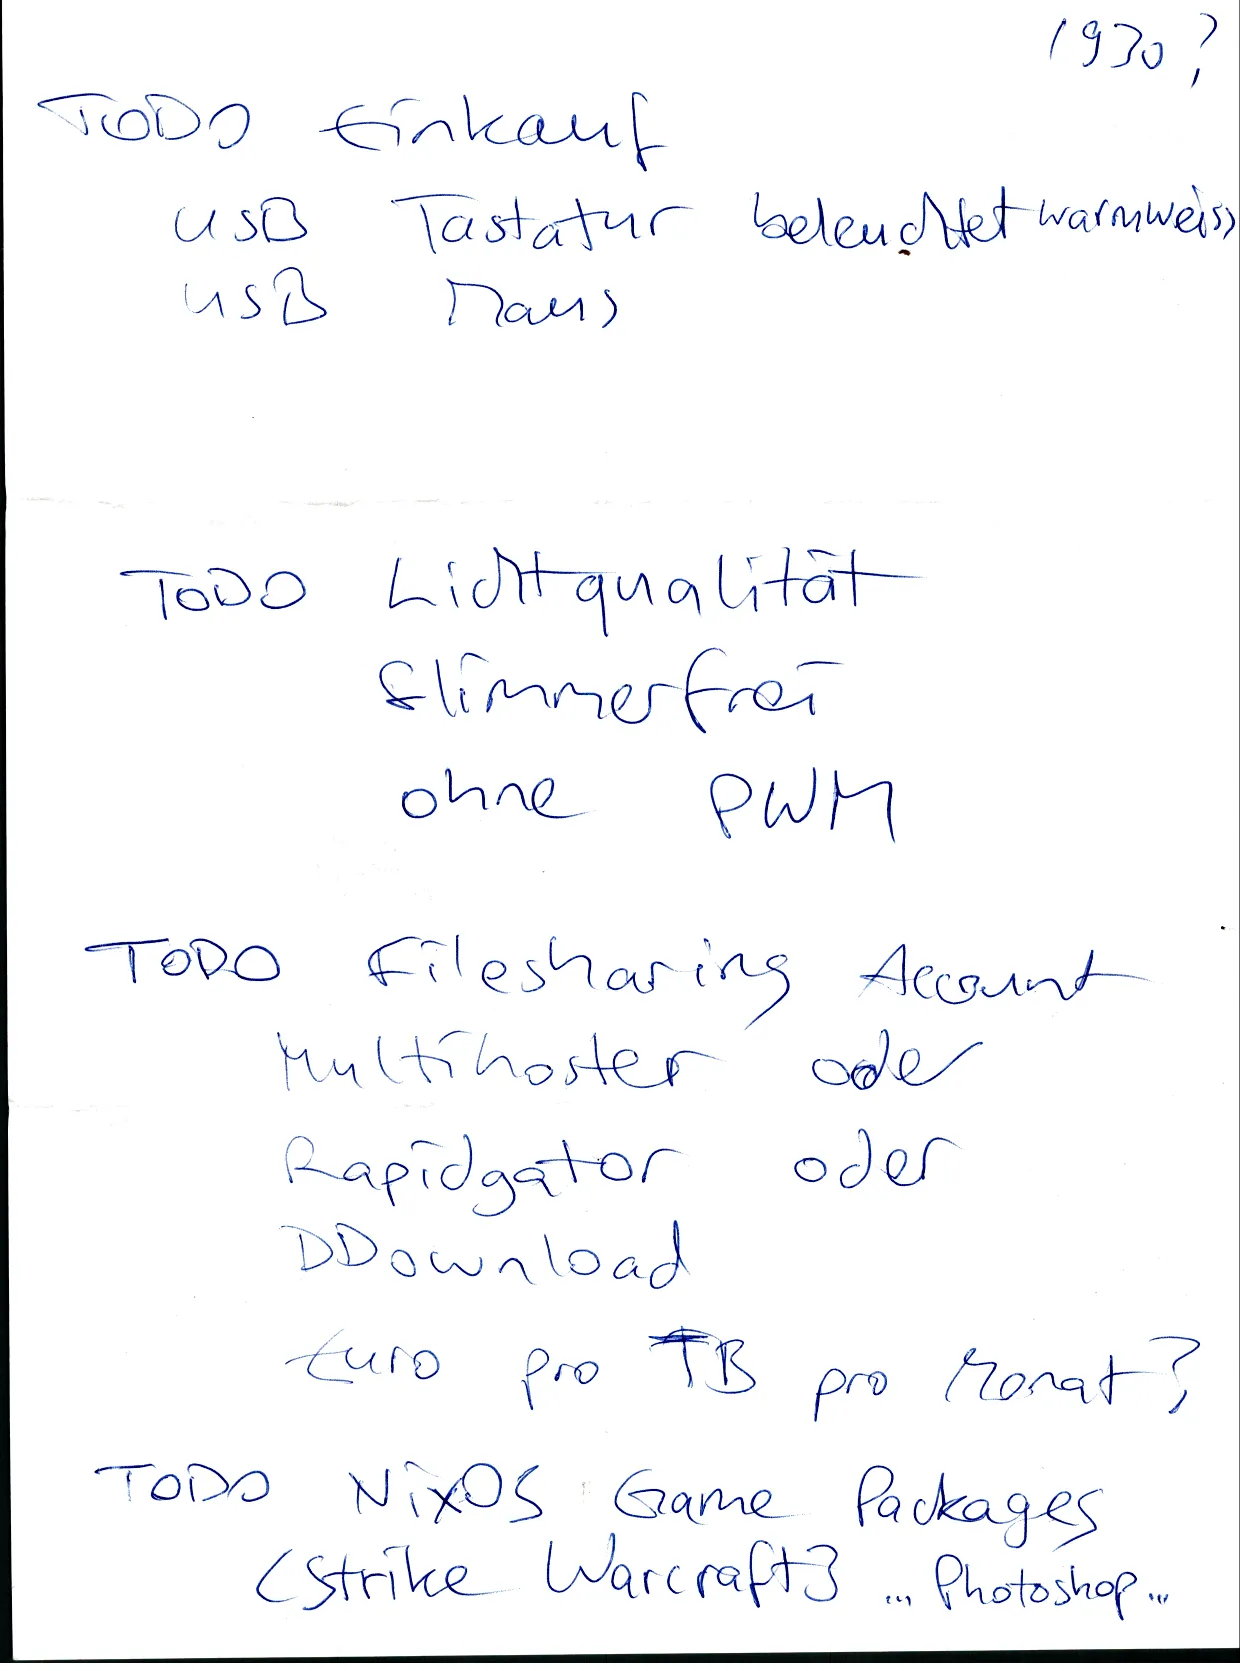 1930?
TODO Einkauf
USB Tastatur beleuchtet warmweiss
USB Maus
TODO Lichtqualität
flimmerfrei
ohne PWM
TODO Filesharing Account
Multihoster oder
Rapidgator oder
DDownload
Euro pro TB pro Monat?
TODO NixOS Game Packages
CStrike Warcraft3 ... Photoshop ...